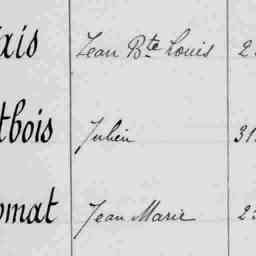 ais Jean Bte Louis 2
tbois Julien 31
omat Jean Marie 2